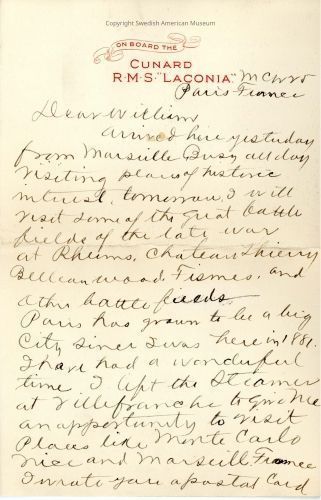 Copyright Swedish American Museum
ON BOARD THE
CUNARD
R·M·S "LACONIA"
Paris France
Dear William
arrived here yesterday
from Marseille Busy all day
visiting places of historic
interest, tomorrow, I will
visit some of the great battle
fields of the late war
at Rheims, Chateau Thierry
Belleau wood, Fismes, and
other battlefields.
Paris has grown to be a big
City since I was here in 1881.
I have had a wonderful
time I left the Steamer
at Villefranche to give me
an opportunity to visit
Places like Monte Carlo
Nice and Marseill, France
I wrote you a postal Card